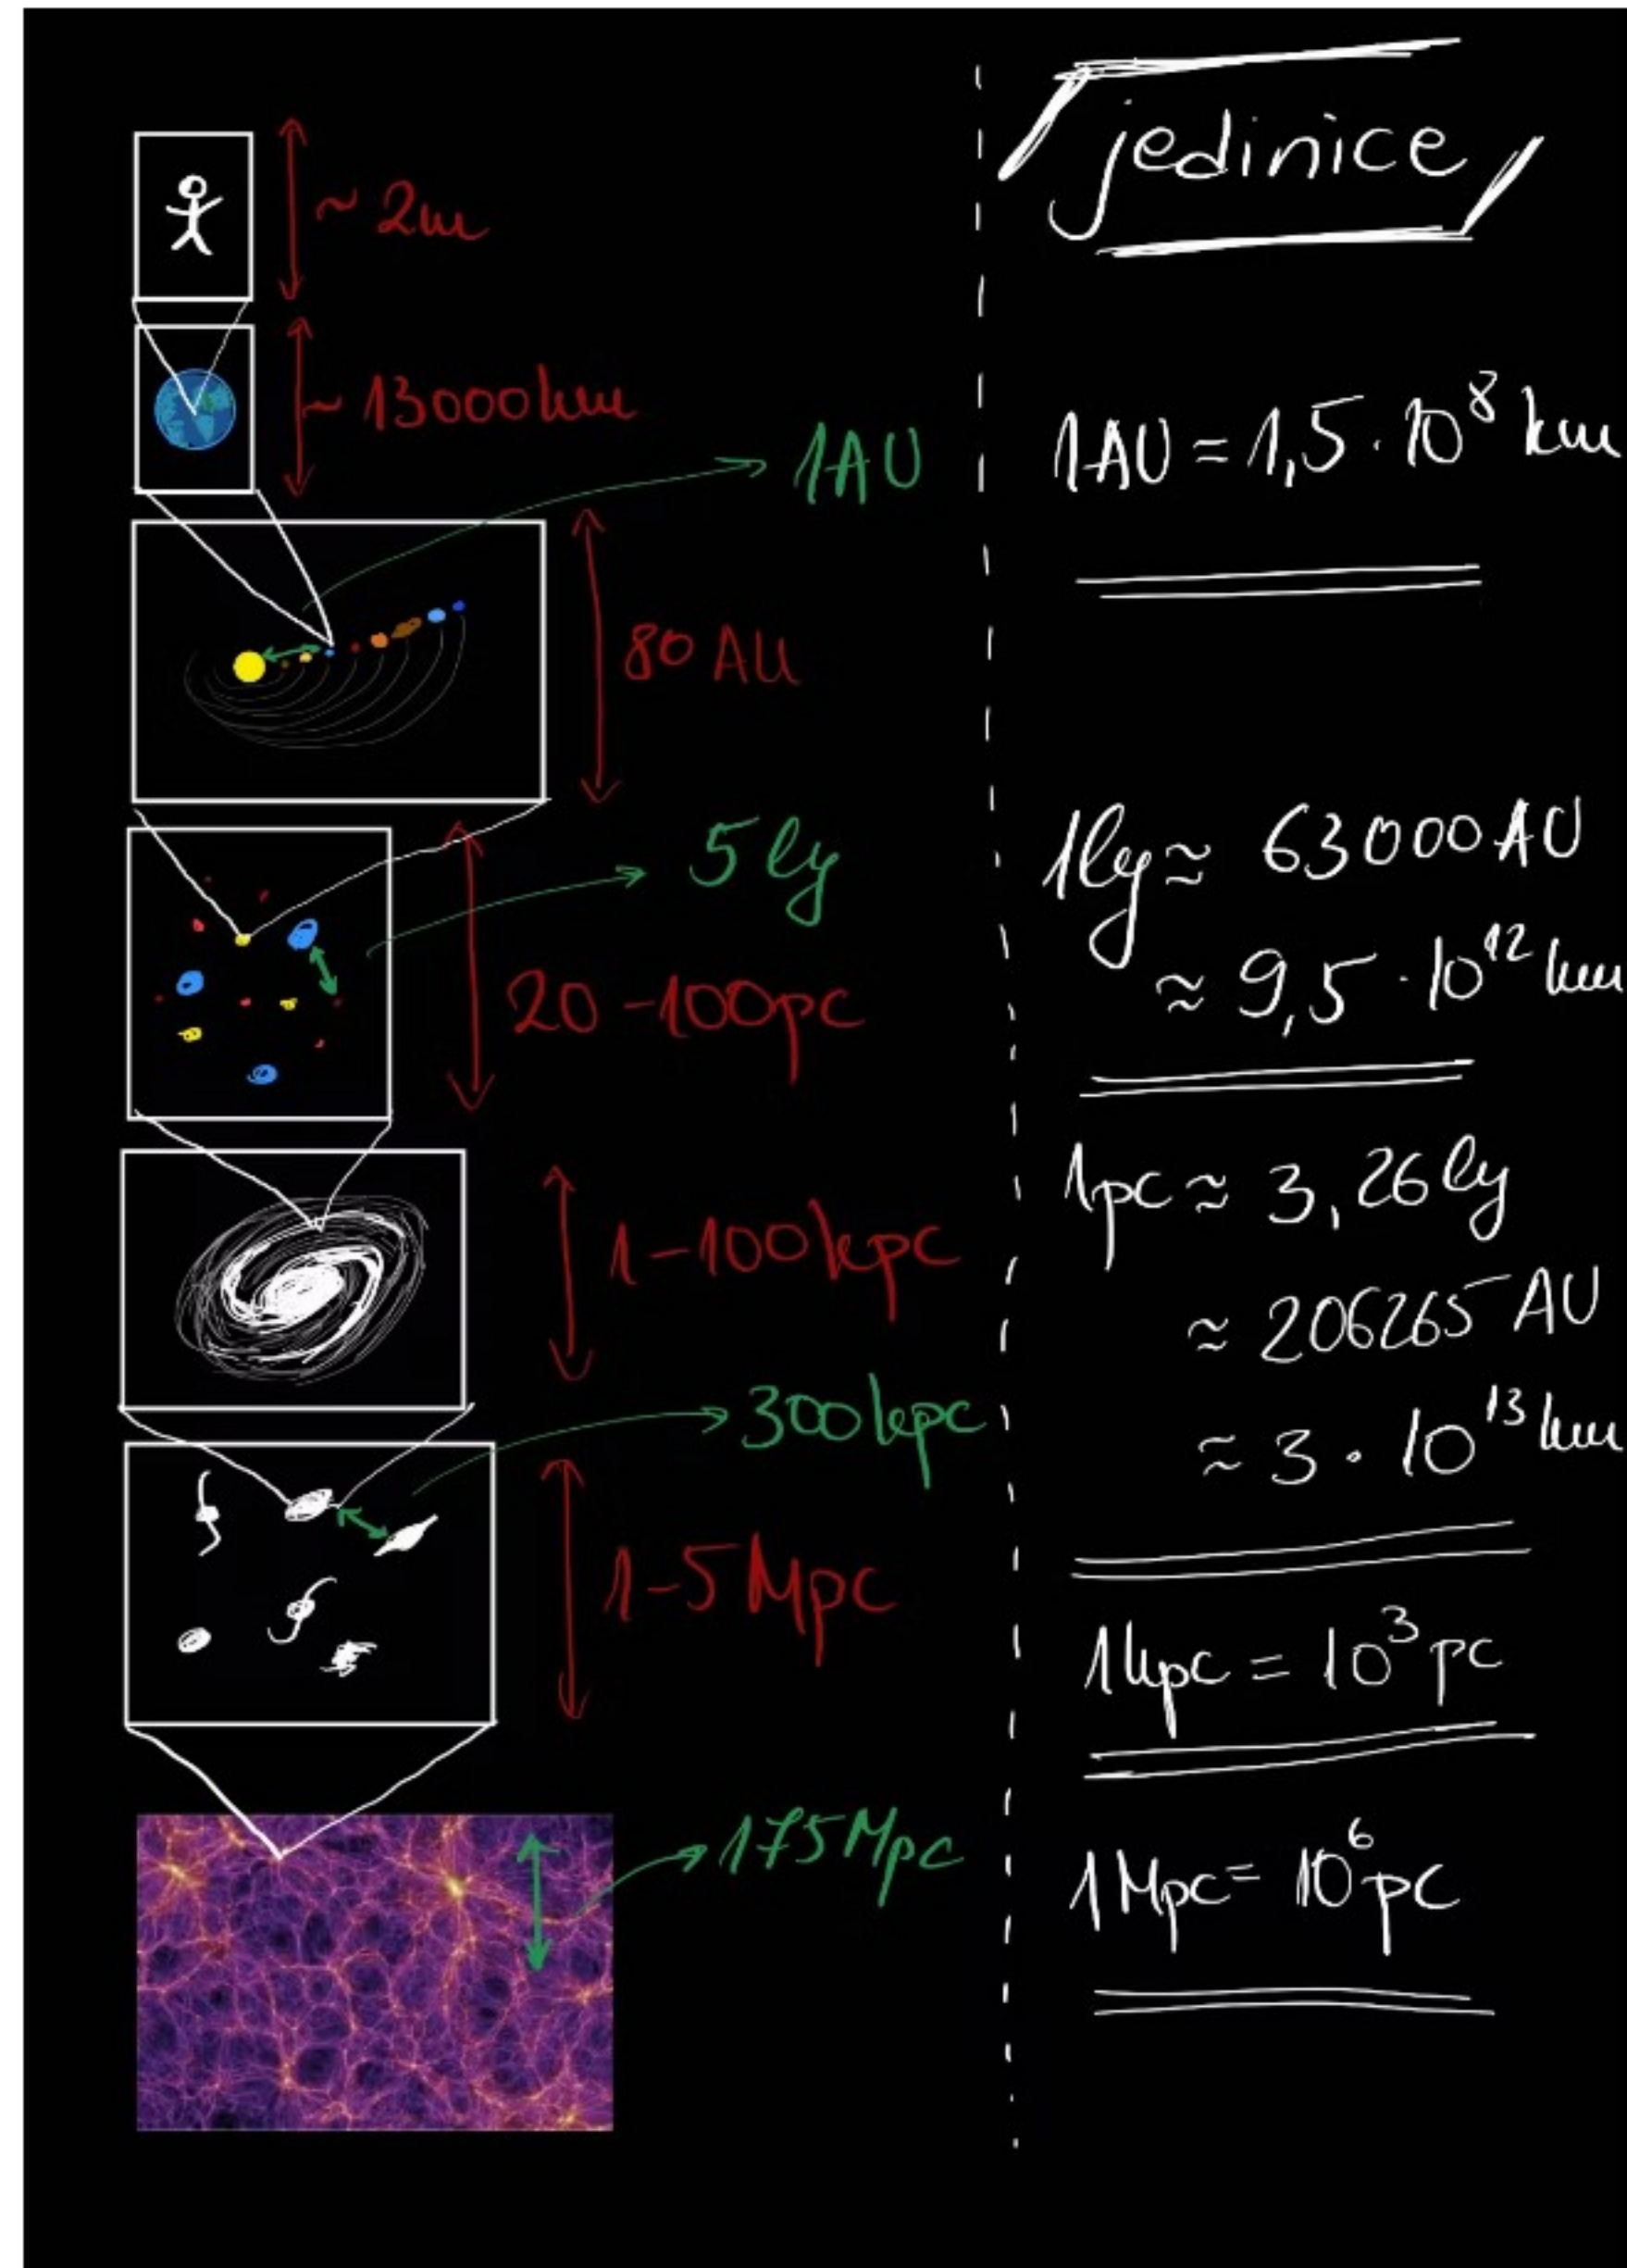 ~ 2m
~ 13000km
1AU
80 AU
5 ly
20-100pc
1-100kpc
300kpc
1-5 Mpc
175Mpc
jedinice
1AU = 1,5 · 10⁸ km
1ly ≈ 63000 AU
≈ 9,5 · 10¹² km
1pc ≈ 3,26 ly
≈ 206265 AU
≈ 3 · 10¹³ km
1kpc = 10³ pc
1Mpc = 10⁶ pc